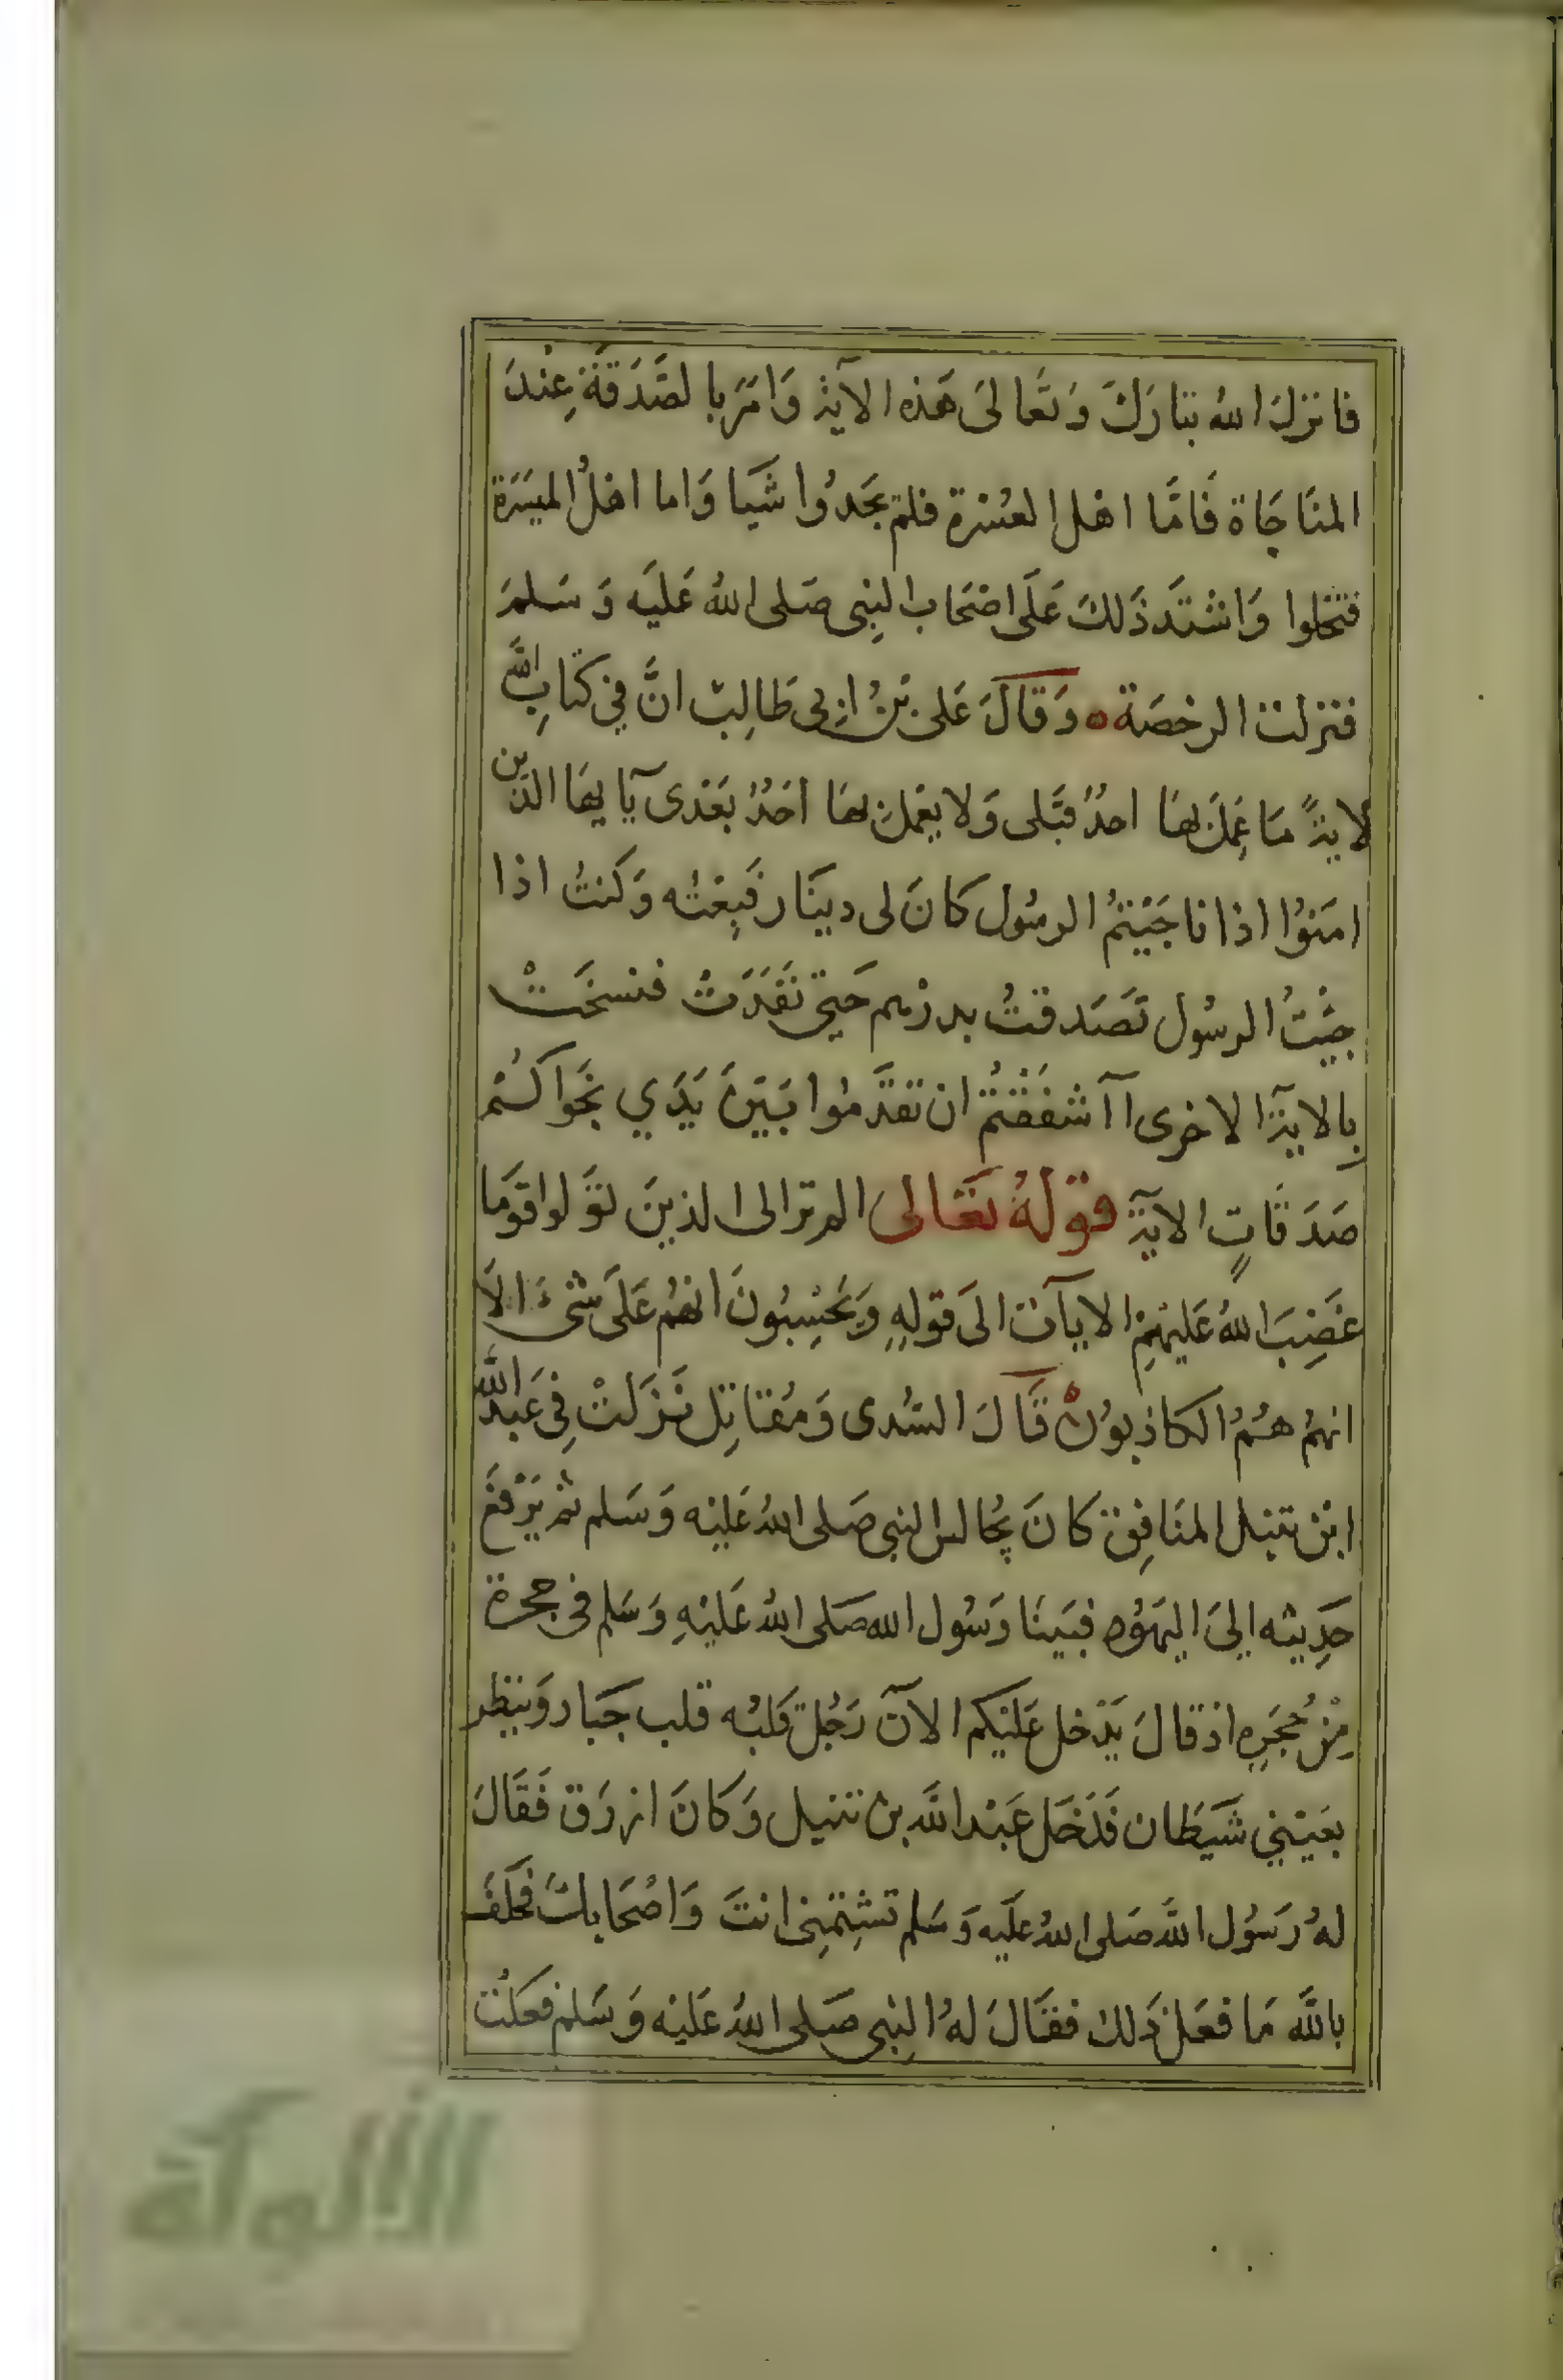 فانزل الله تبارك وَتَعَالىَ هَذه الآية وَامَرَ بالصَّدَقَةِ عِنْدَ
المنَاجَاة فَامَّا اهْل العُسْرة فلم يجَدُوا شَيا وَاما اهْلُ الميسَرَة
فبَخلوا وَاشْتَد ذَلكَ عَلَى اصْحَاب النِبى صَلى اللهُ عَليَه وَسَلمَ
فنزلت الرخصَة وَقَالَ عَلى بْنُ ابِى طَالِب انَّ في كتابِ اللَّه
لايةً مَا عَمِلَ بهَا احدٌ قبَلى وَلا يعْمل بهَا احَدٌ بَعْدى يَآ ايهَا الذين
امَنوُا اذا ناجَيْتمُ الرسُول كانَ لى دينَار فَبِعْتُه وَكنتُ اذا
جِيْتُ الرسُول تَصَدقتُ بدرْهم حَتى نَفَدَتْ فنسخَتْ
بِالايَة الاخرى اآشفَقْتُمْ ان تقدَّمُوا بَيْنَ يَدَي نجَواكُمْ
صَدَقَاتٍ الآية قوْلهُ تعَالى الم تر الى الذينَ تَوَلوا قوَما
غَضِبَ اللهُ عَليهمِ الايآت الىَ قولِهِ وَيَحْسِبُونَ انهُم عَلَى شىْء الَا
انهمُ هُمُ الكاذبوُنْ قَالَ السُدى وَمُقاتِل نَزَلتْ فِى عَبد اللَّه
ابْن نبتل المنَافِق كانَ يُجالس النبى صَلى اللهُ عَليْه وَسَلم ثم يَرْفعَ
حَدِيثه الىَ اليهَوُد فبَينَا رَسُول الله صَلى اللهُ عَليْهِ وَسَلم فى حجرة
مِنْ حُجَرِه اذ قالَ يَدْخل عَليْكم الآنَ رَجُل قلبُه قلب جَبار وَينظر
بعَيْنِي شَيَطان فَدَخَل عَبْد اللَّه بن نتيل وَكانَ ازرَق فَقَالَ
لهُ رَسُول اللَّه صَلى اللهُ علَيه وَسَلم تشِتمِنى انتَ وَاصْحَابكَ فحَلَفَ
باللَّه مَا فعَل ذَلك فقَالَ لهُ النِبى صَلى اللهُ عَليْه وَسَلم فعَلْت
الألوكة